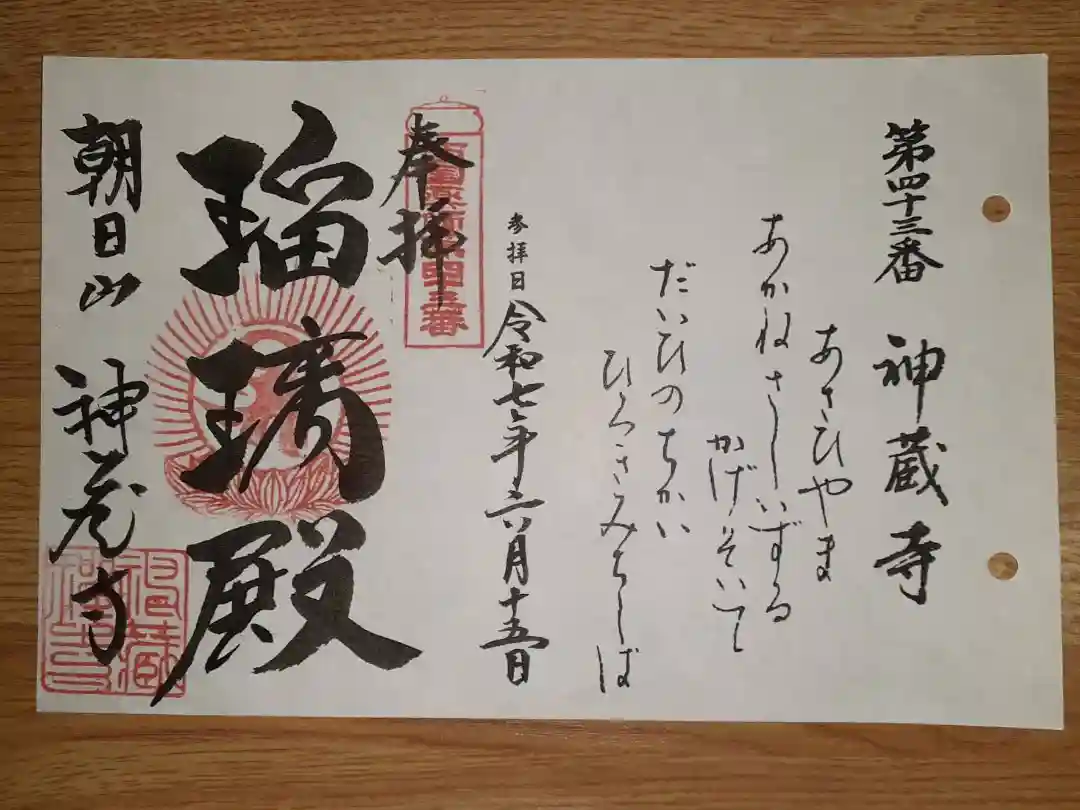 第四十三番 神蔵寺
あさひやま
あかねさしいずる
かげそいて
だいひのちかい
ひろきみちしば
参拝日 令和七年六月十五日
奉拝
瑠璃殿
朝日山 神蔵寺